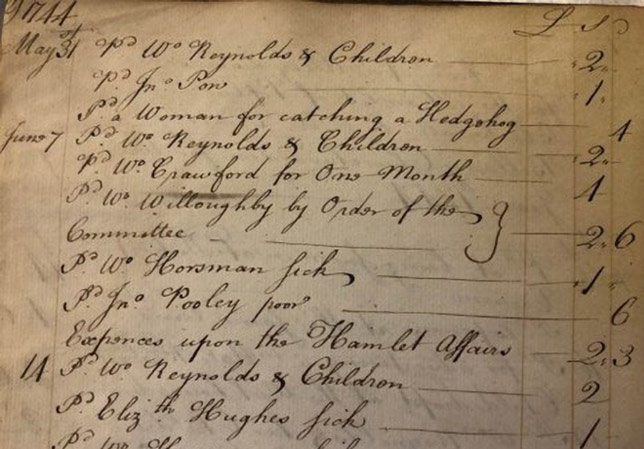 1744 £ S D
May 31st Pd Wo Reynolds & Children 2
Pd Jno Pon 1
Pd a Woman for catching a Hedgehog 4
June 7 Pd Wo Reynolds & Children 2
Pd Wo Crawford for One Month 4
Pd Wo Willoughby by Order of the
Committee 2 6
Pd Wo Horsman sick 1
Pd Jno Pooley poor 6
Expences upon the Hamlet Affairs 2 3
14 Pd Wo Reynolds & Children 2
Pd Elizth Hughes sick 1
Pd Wo